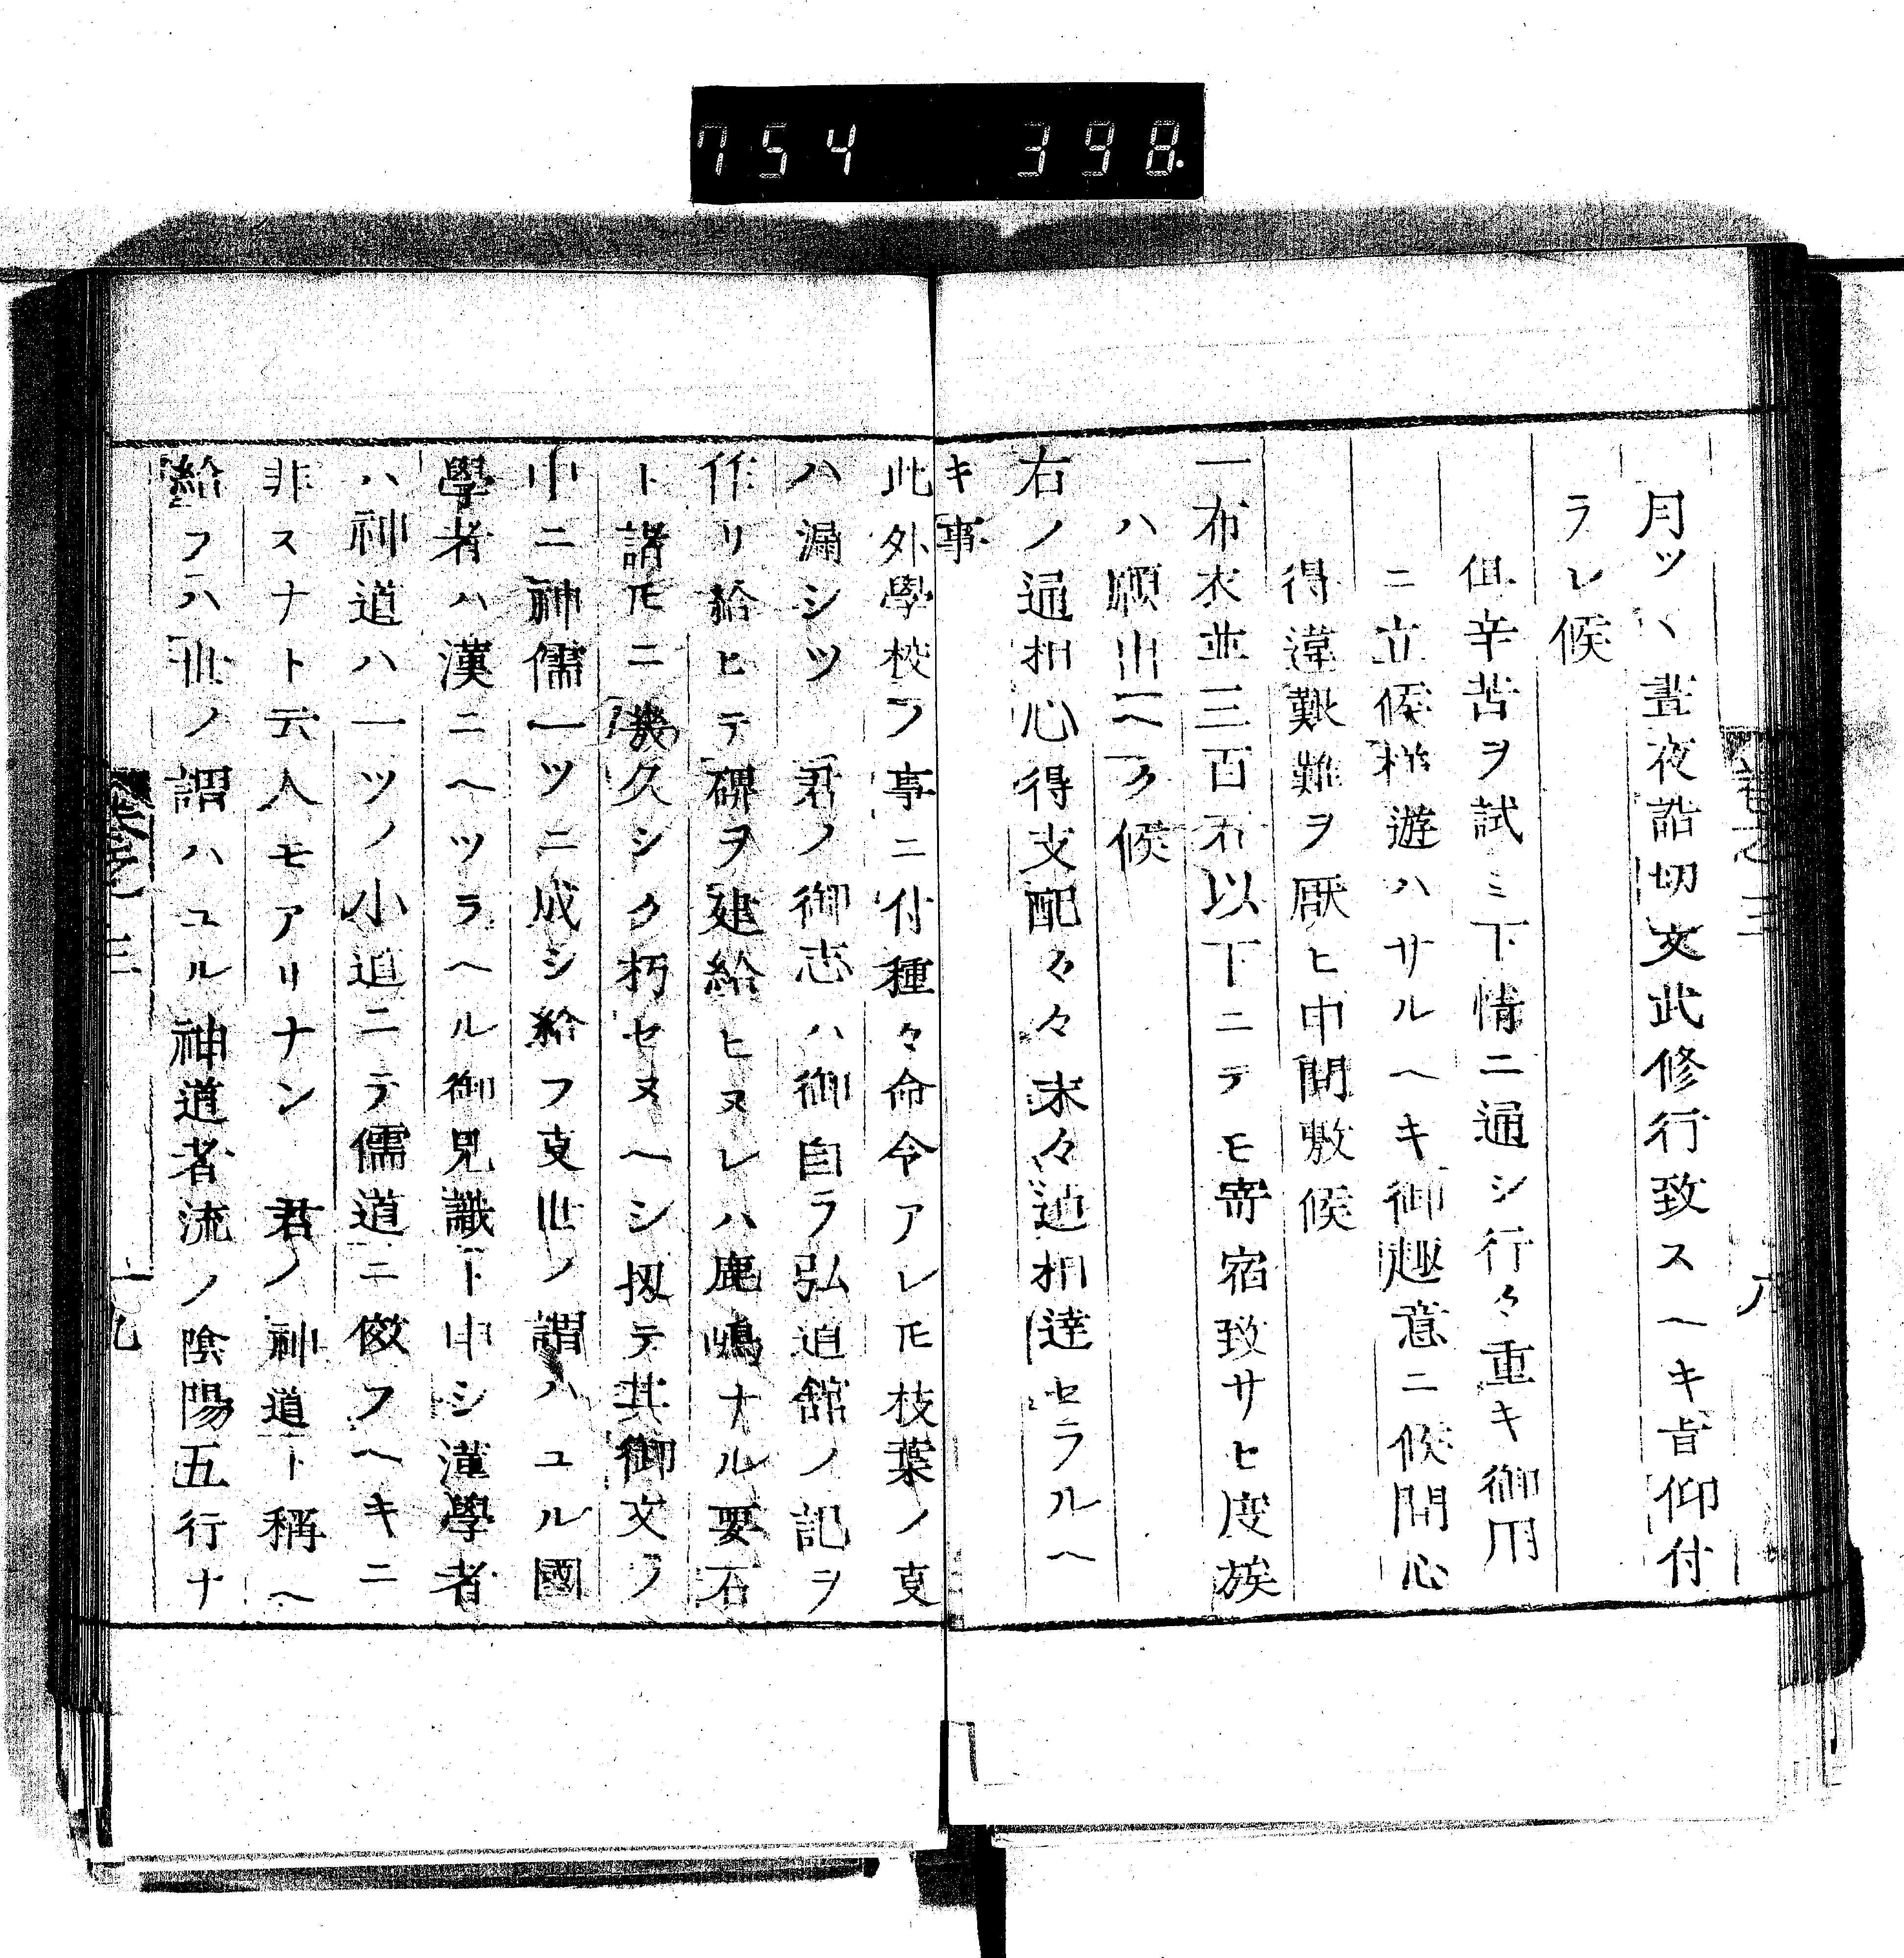 754 398
月ツヽ晝夜詰切文武修行致スヘキ旨仰付
ラレ候
但辛苦ヲ試ミ下情ニ通シ行々重キ御用
ニ立候様遊ハサルヘキ御趣意ニ候間心
得違艱難ヲ厭ヒ申間敷候
一布衣並三百石以下ニテモ寄宿致サヒ度族
ハ願出ヘク候
右ノ通相心得支配々々末々迠相達セラルヘ
キ事
此外學校ノ事ニ付種々命令アレ𪜈枝葉ノ㕝
ハ漏シツ 君ノ御志ハ御自ラ弘道館ノ記ヲ
作リ給ヒテ碑ヲ建給ヒヌレハ鹿嶋ナル要石
ト諸𪜈ニ幾久シク朽セヌヘシ扨テ其御文ノ
中ニ神儒一ツニ成シ給フ㕝世ノ謂ハユル國
學者ハ漢ニヘツラヘル御見識ト申シ漢學者
ハ神道ハ一ツノ小道ニテ儒道ニ傚フヘキニ
非スナト云人モアリナン 君ノ神道ト稱ヘ
給フハ世ノ謂ハユル神道者流ノ陰陽五行ナ
巻之三
十九